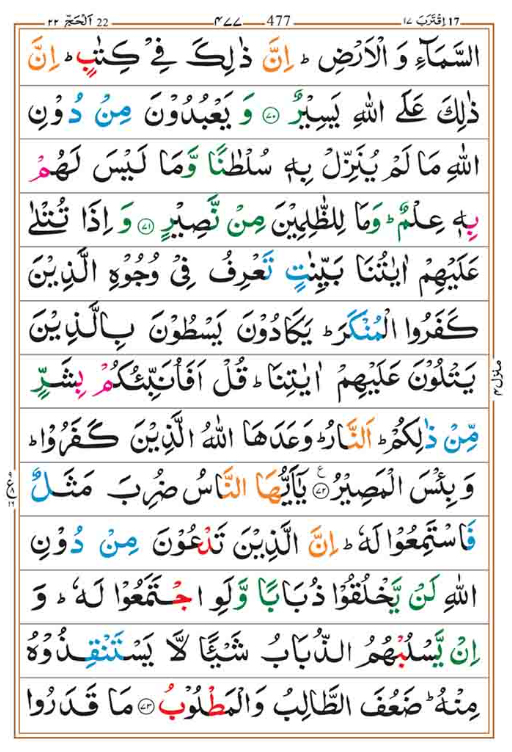 اِقْتَرَبَ ١٧ 17 ٤٧٧ 477 اَلْحَجّ ٢٢ 22
السَّمَآءِ وَ الْاَرْضِ ؕ اِنَّ ذٰلِكَ فِیْ كِتٰبٍ ؕ اِنَّ
ذٰلِكَ عَلَی اللّٰهِ یَسِیْرٌ ۝۷۰ وَ یَعْبُدُوْنَ مِنْ دُوْنِ
اللّٰهِ مَا لَمْ یُنَزِّلْ بِهٖ سُلْطٰنًا وَّمَا لَیْسَ لَهُمْ
بِهٖ عِلْمٌ ؕ وَمَا لِلظّٰلِمِیْنَ مِنْ نَّصِیْرٍ ۝۷۱ وَ اِذَا تُتْلٰی
عَلَیْهِمْ اٰیٰتُنَا بَیِّنٰتٍ تَعْرِفُ فِیْ وُجُوْهِ الَّذِیْنَ
كَفَرُوا الْمُنْكَرَ ؕ یَكَادُوْنَ یَسْطُوْنَ بِالَّذِیْنَ
یَتْلُوْنَ عَلَیْهِمْ اٰیٰتِنَا ؕ قُلْ اَفَاُنَبِّئُكُمْ بِشَرٍّ
مِّنْ ذٰلِكُمْ ؕ اَلنَّارُ ؕ وَعَدَهَا اللّٰهُ الَّذِیْنَ كَفَرُوْا ؕ
وَ بِئْسَ الْمَصِیْرُ ۝۷۲ ع یٰۤاَیُّهَا النَّاسُ ضُرِبَ مَثَلٌ
فَاسْتَمِعُوْا لَهٗ ؕ اِنَّ الَّذِیْنَ تَدْعُوْنَ مِنْ دُوْنِ
اللّٰهِ لَنْ یَّخْلُقُوْا ذُبَابًا وَّلَوِ اجْتَمَعُوْا لَهٗ ؕ وَ
اِنْ یَّسْلُبْهُمُ الذُّبَابُ شَیْـًٔا لَّا یَسْتَنْقِذُوْهُ
مِنْهُ ؕ ضَعُفَ الطَّالِبُ وَالْمَطْلُوْبُ ۝۷۳ مَا قَدَرُوا
منزل ٤